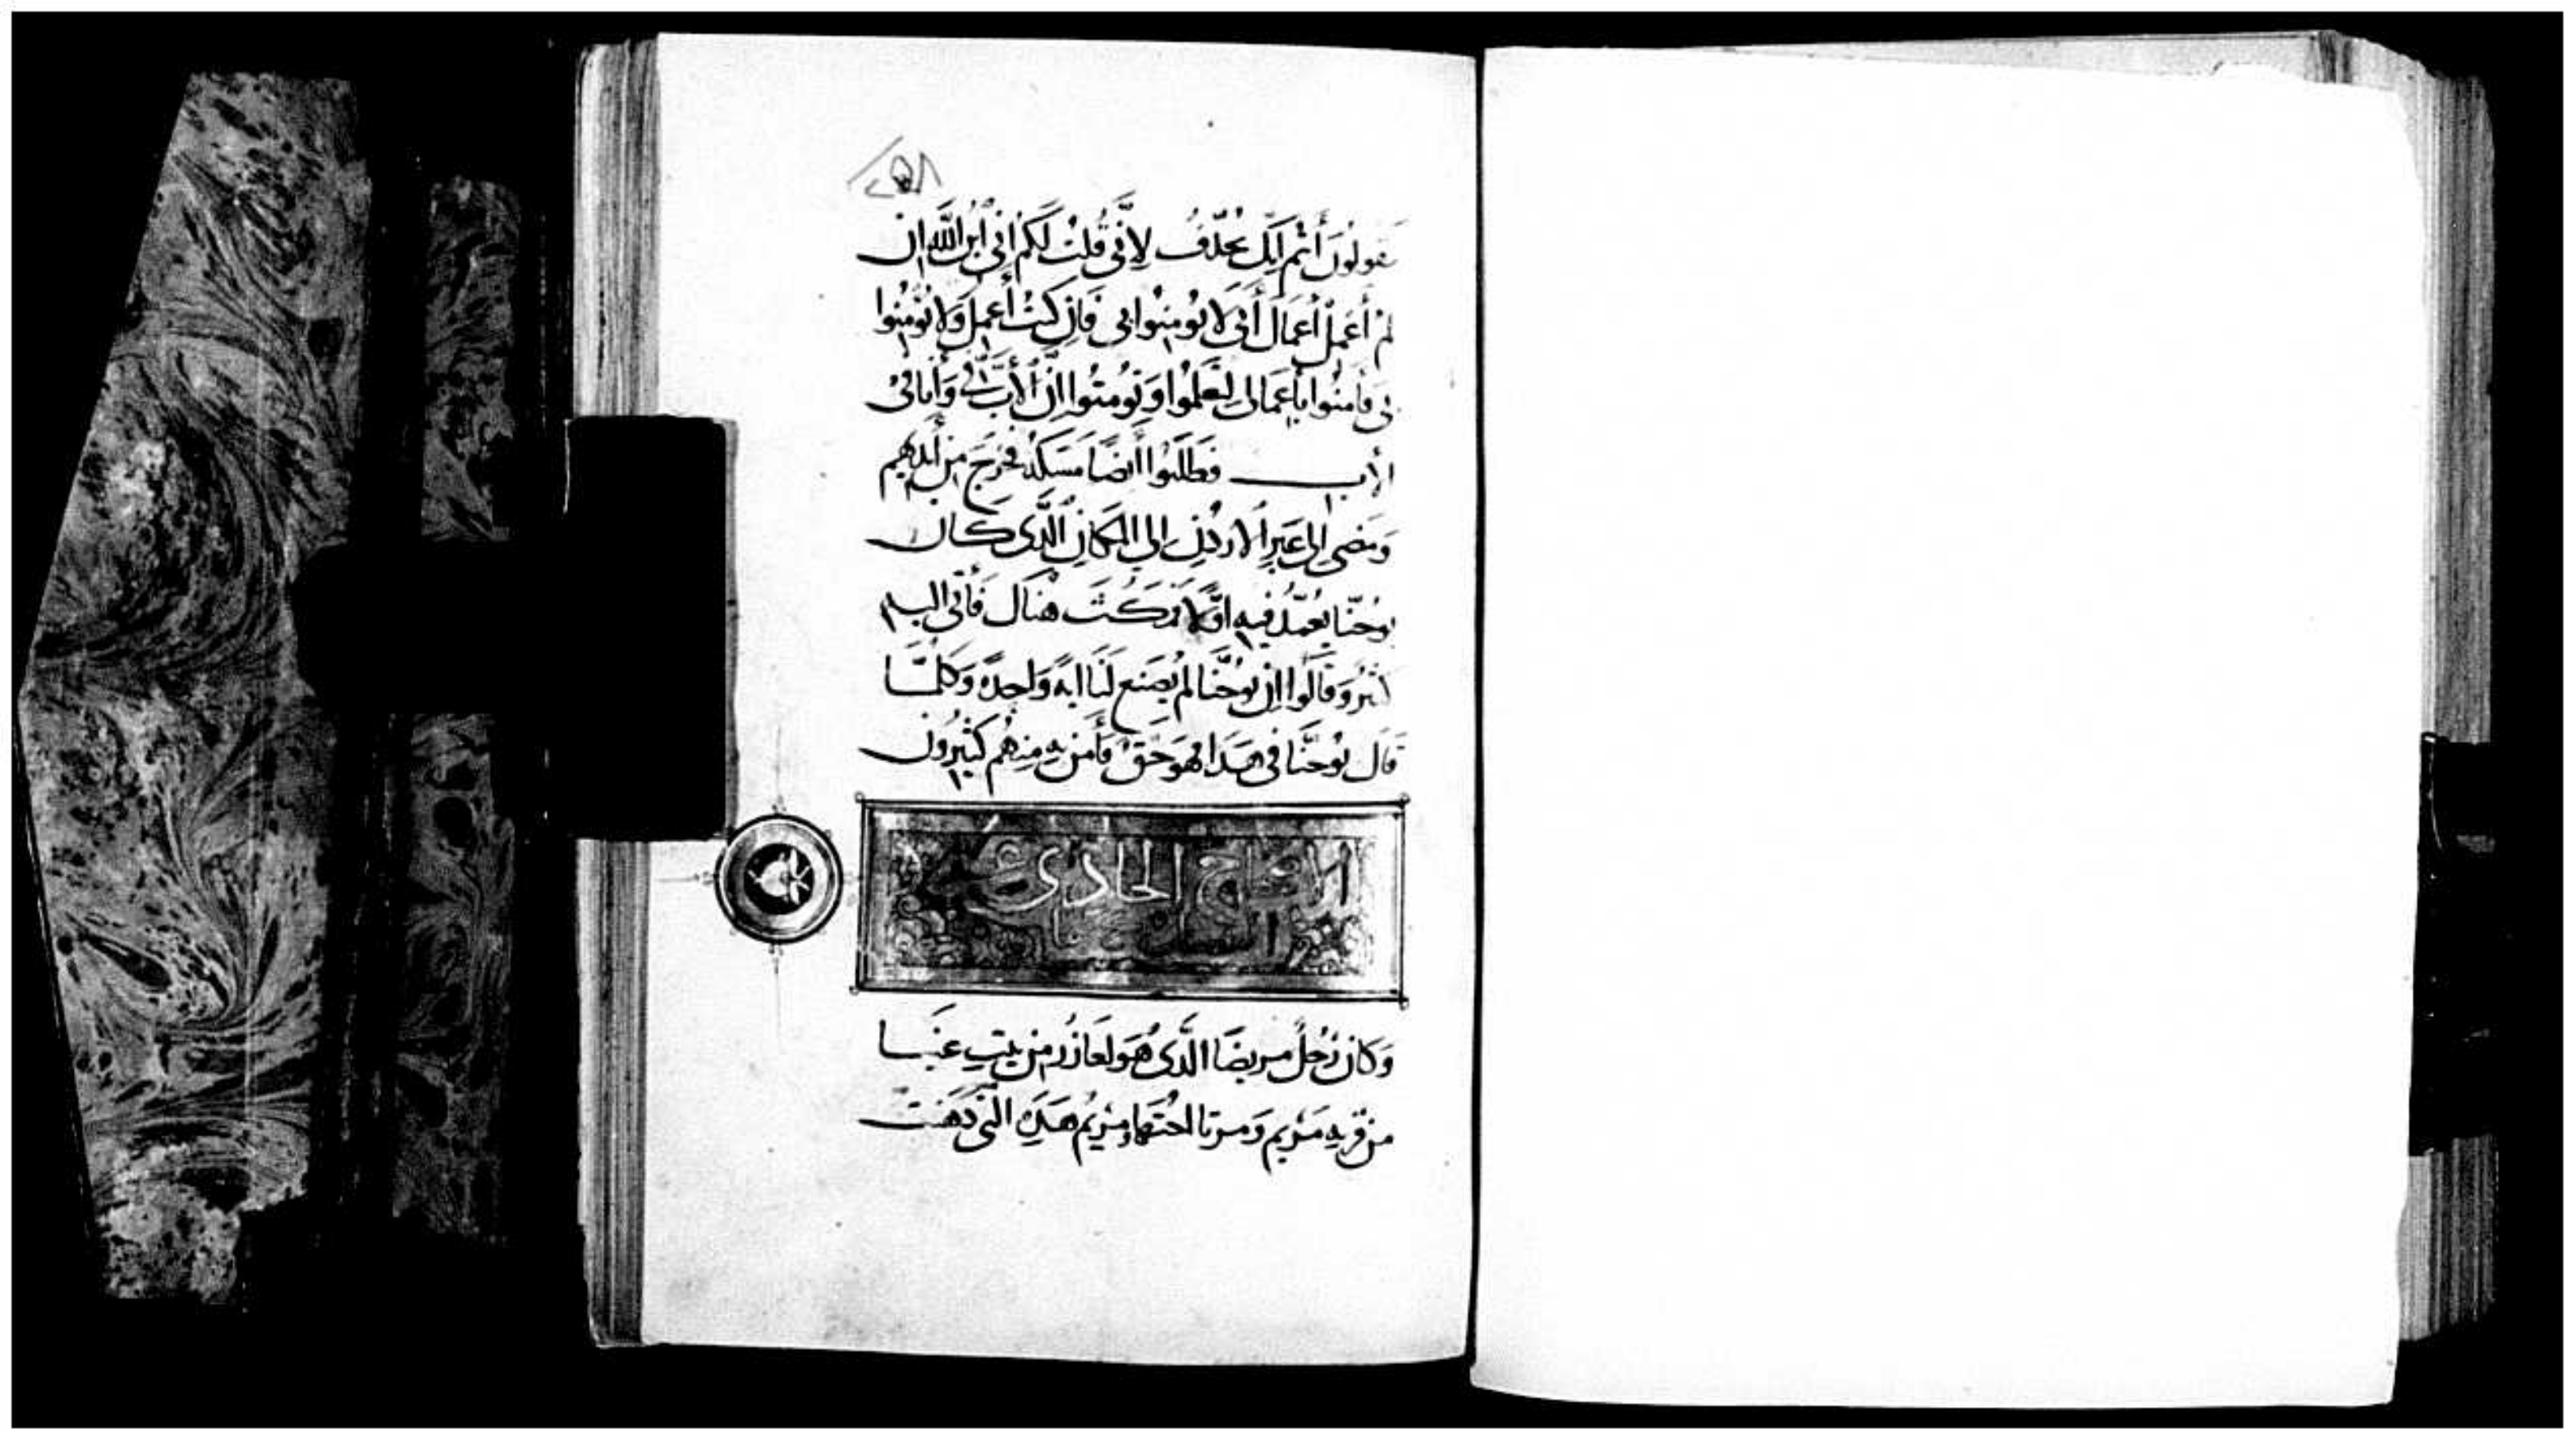 ٢٥٨
تقولون أنتم إنك تجدّف لِأنّي قُلتْ لَكم اني ابن اللّه ان
لم أعمل أعمال أبي لا تومنوا بي فَإن كنتُ أعمل وَلا تُومنُوا
بي فآمنُوا بأعمالي لتعلموا وَتُومنُوا انّ الأبَ فيَّ وَأنا فيْ
الأب فَطلبُوا أيضًا مسكه فخرجَ من أيديهم
وَمضى إلى عبر الاردُن إلى المكان الّذي كان
يوحنّا يُعمّد فيه اوَّلا فمكثَ هناك فأتى اليه
كثير وَقالوا إن يُوحنّا لم يصنع لنا اية وَاحدة وَكلمّا
قال يُوحنّا في هذا فهو حَق فأمن بهِ منهُم كثيرُون
الاصحاح الحادي عشر
وَكان رَجلٌ مريضًا الّذي هُو لعازر من بيت عنيا
من قرية مَريم وَمرتا اختها ومريم هذه التي دَهنت